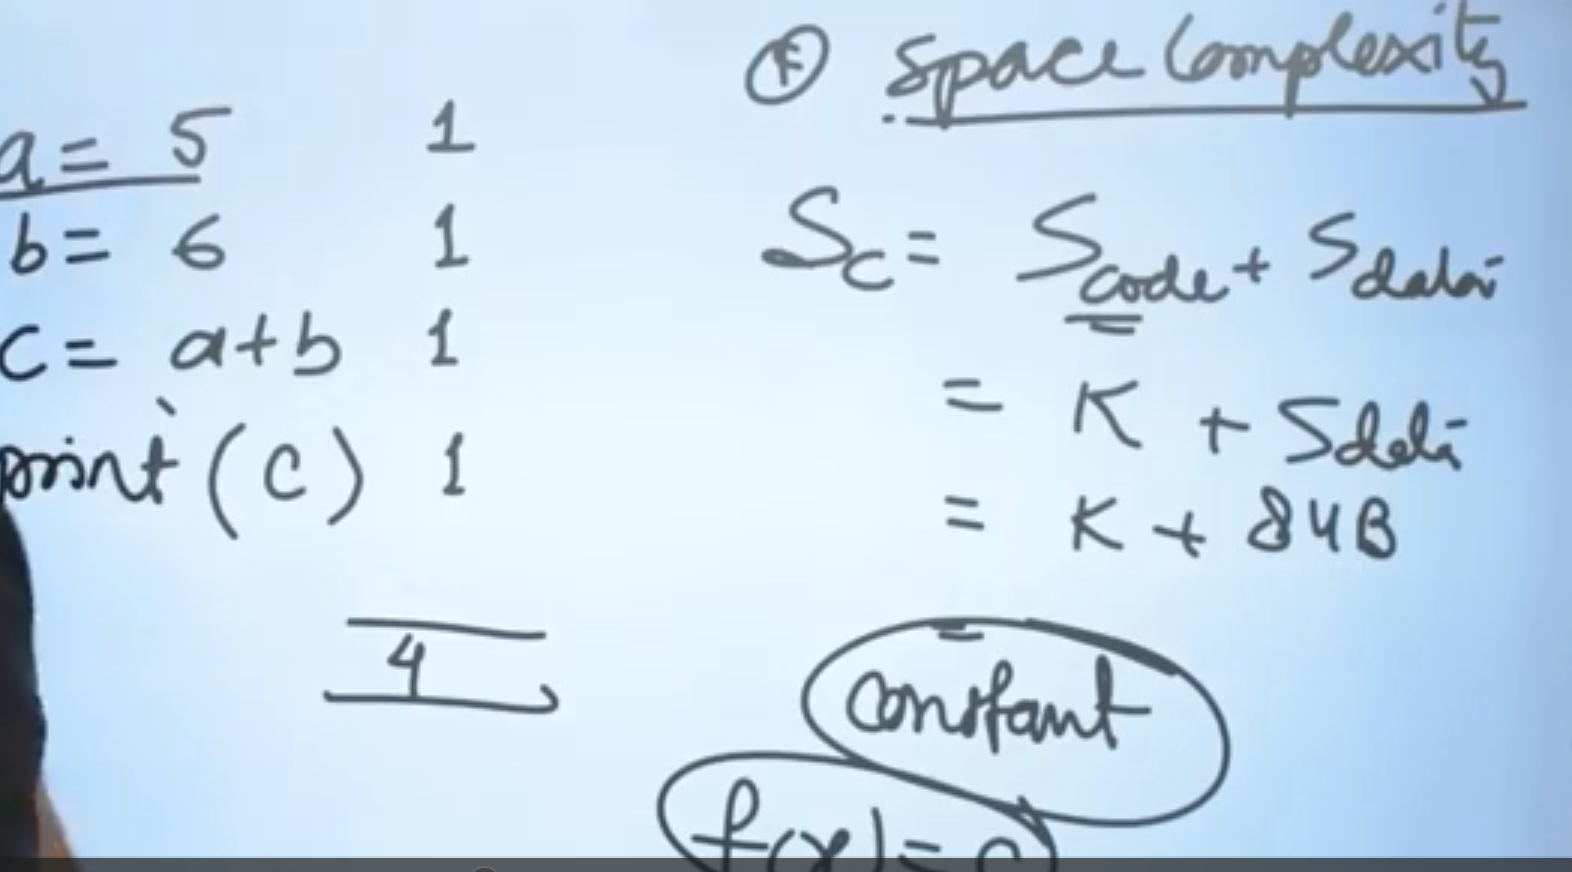 a = 5 1
b = 6 1
c = a+b 1
print (c) 1
4
Space Complexity
Sc = Scode + Sdata
= K + Sdata
= K + 84B
=
constant
f(x) = c